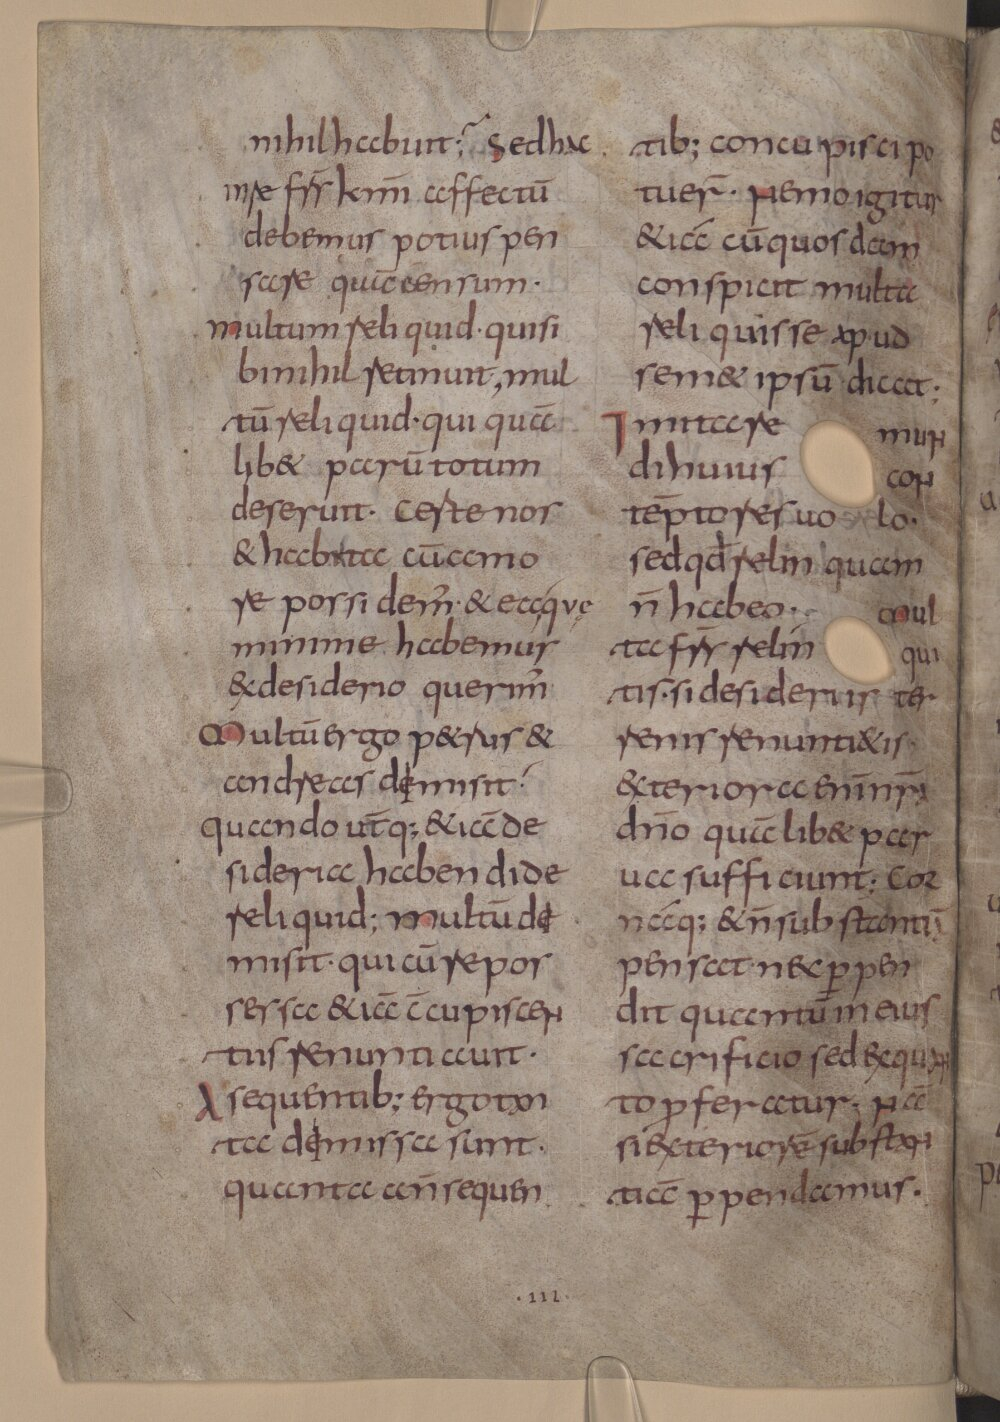 nihil habuit; Sed hac
in re frs̄ k̄mī affectū
debemus potius pen
sare quā censum·
multum reliquid· qui si
bi nihil retinuit, mul
tū reliquid· qui quā
lib& parū totum
deseruit· Certe nos
& habita cū amo
re possidem̄· & ea quę
minime habemus
& desiderio querim̄
Multū ergo p&rus &
andreas demisit·
quando ut̄q; &iā de
sideria habendi de
reliquid; multū de
misit· qui cū re pos
sessa &iā c̄cupiscen
tiis renuntiauit·
A sequentib; ergo tan
ta demissa sunt·
quanta a n̄ sequen
tib; concupisci po
tuer̄· Nemo igitur
&iā cū quos dam
conspicit multa
reliquisse apud
sem& ipsū dicat;
Imitare
mun
di huius
con
tēptores uo lo·
sed qd̄ relin quam
n̄ habeo·
mul
ta frs̄ relin
qui
tis· si desideriis ter
renis renunti&is·
& terior a enī nr̄a
dn̄o quālib& par
ua sufficiunt; Cor
nāq; & n̄ substantiā
pensat· nec ꝑpen
dit quantum in eius
sacrificio sed ex quan
to ꝓferatur· Nā
si exteriorē substan
tiā ꝑpendamus·
·III·